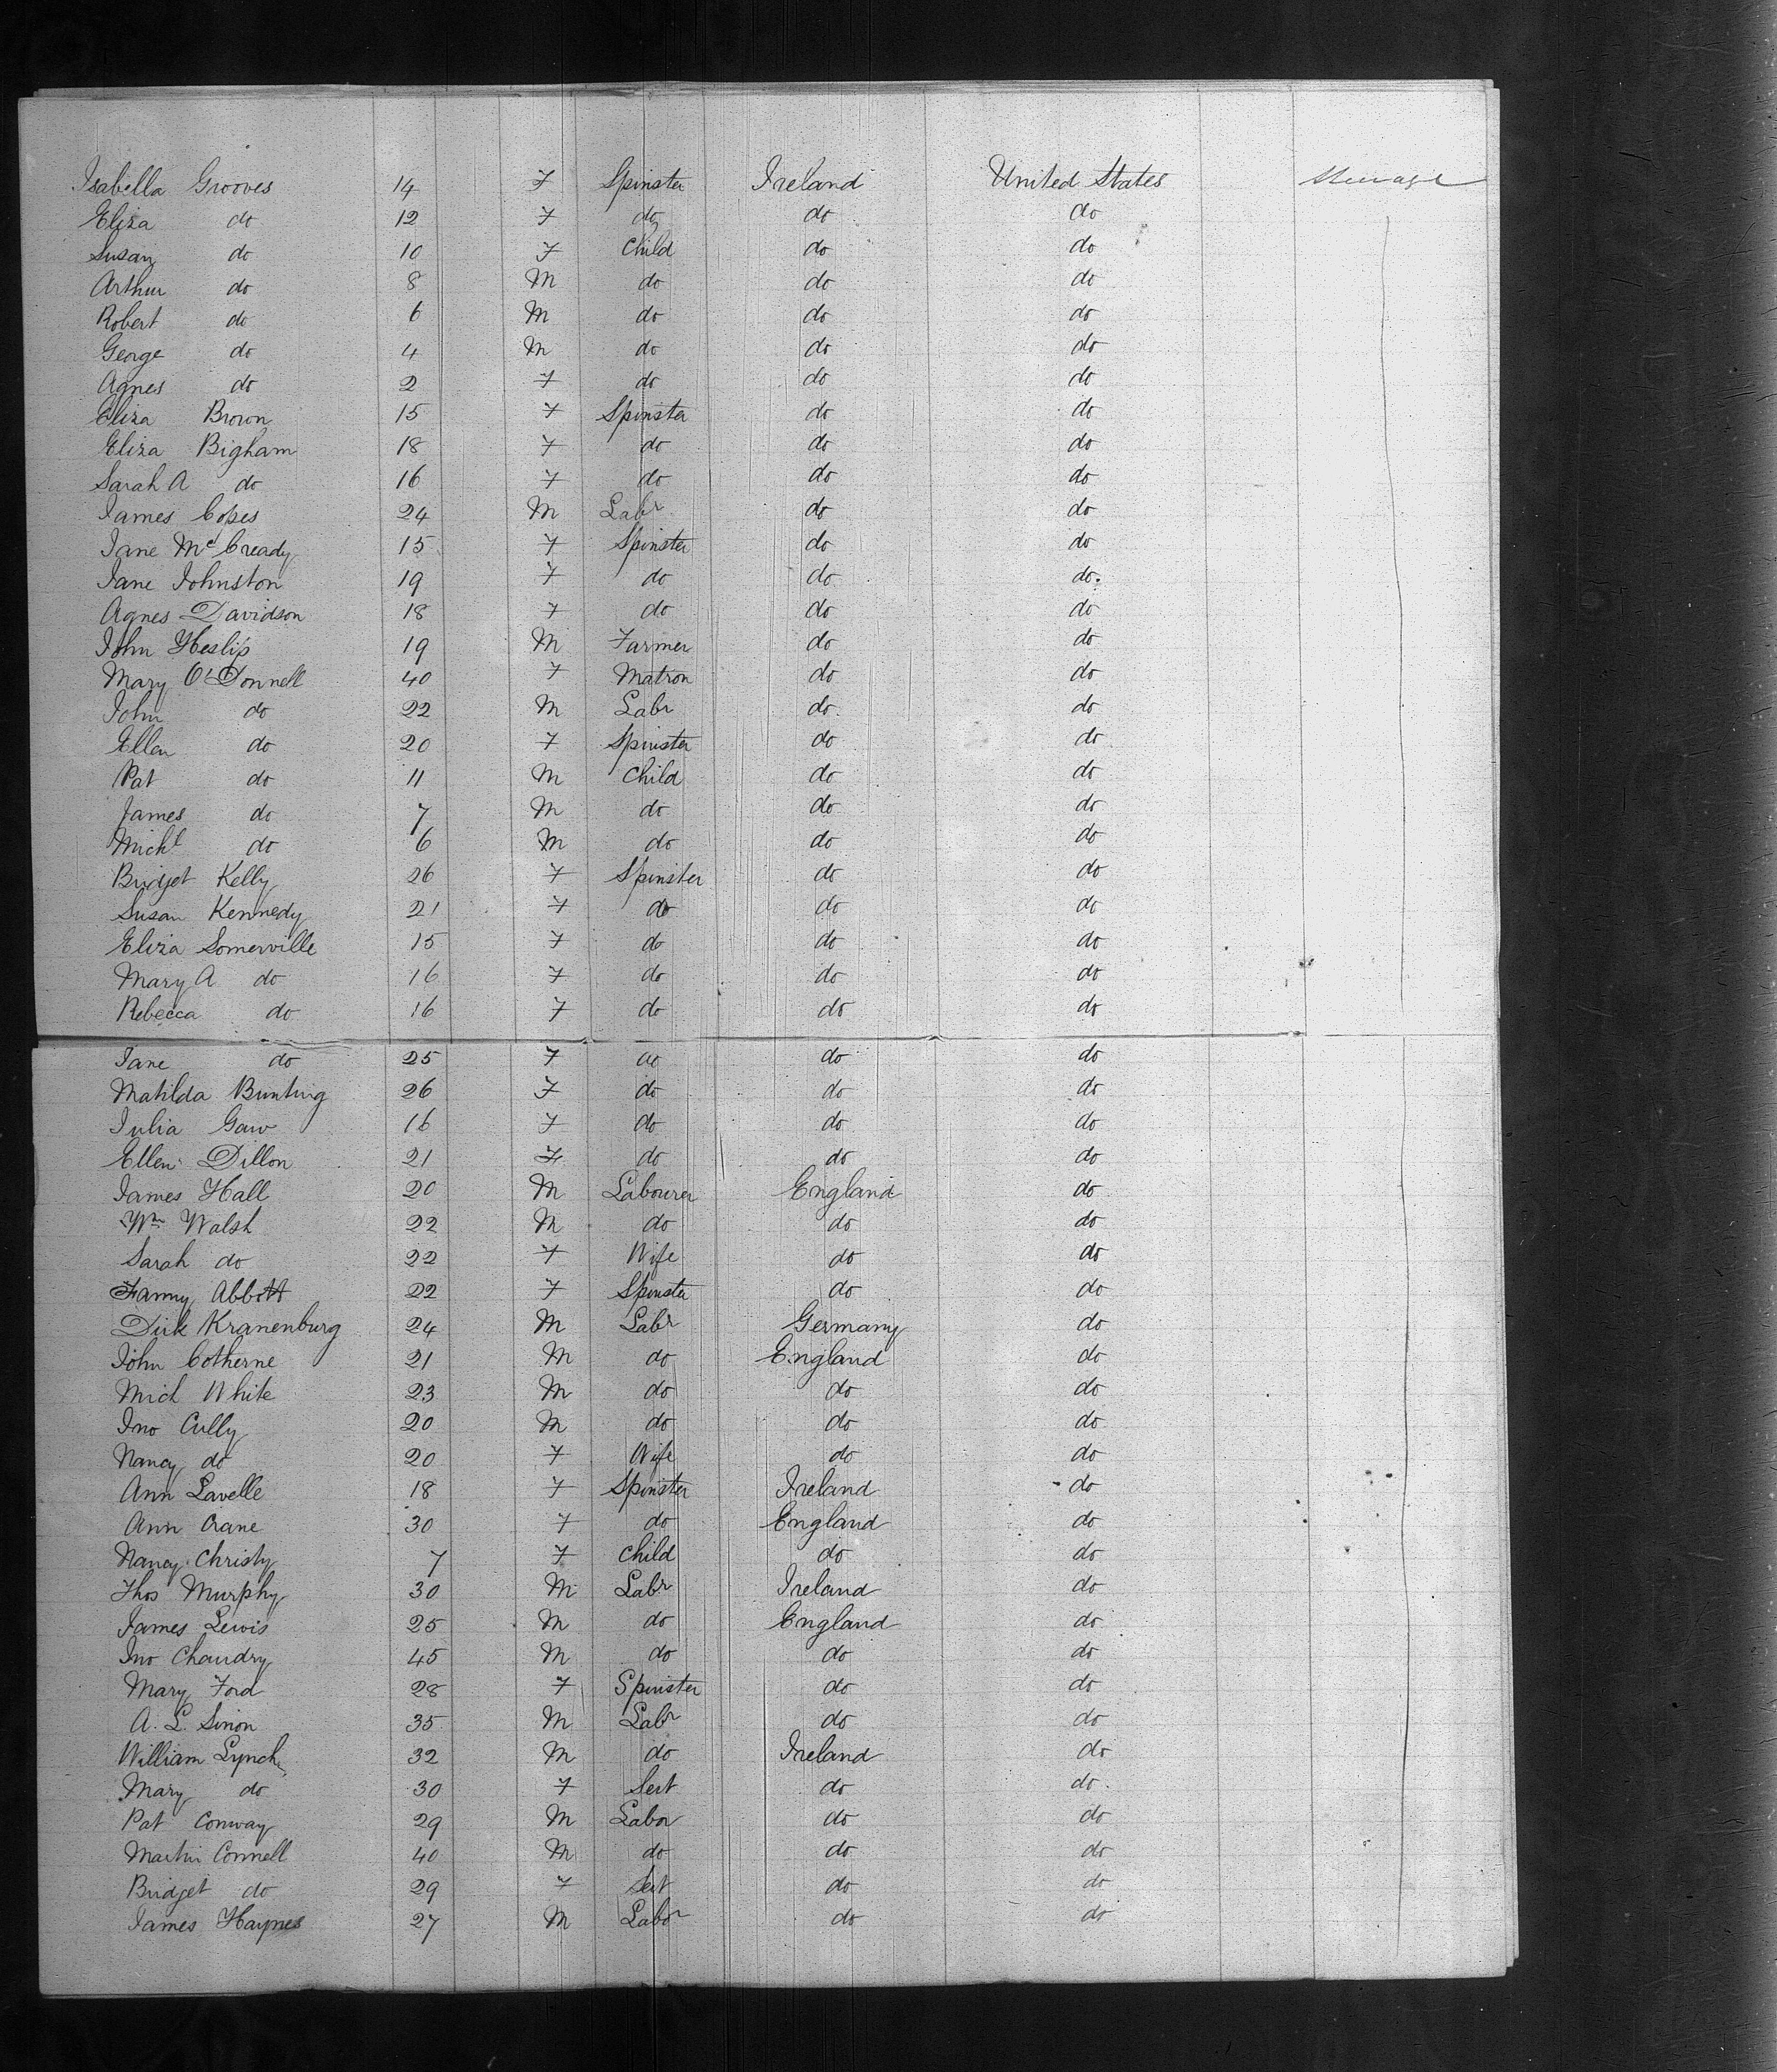 Isabella Grooves 14 F Spinster Ireland United States Steerage
Eliza do 12 F do do do
Susan do 10 F Child do do
Arthur do 8 M do do do
Robert do 6 M do do do
George do 4 M do do do
Agnes do 2 F do do do
Eliza Brown 15 F Spinster do do
Eliza Bigham 18 F do do do
Sarah A do 16 F do do do
James Copes 24 M Labr do do
Jane McCready 15 F Spinster do do
Jane Johnston 19 F do do do
Agnes Davidson 18 F do do do
John Heslip 19 M Farmer do do
Mary O'Donnell 40 F Matron do do
John do 22 M Labr do do
Ellen do 20 F Spinster do do
Pat do 11 M Child do do
James do 7 M do do do
Michl do 6 M do do do
Bridget Kelly 26 F Spinster do do
Susan Kennedy 21 F do do do
Eliza Somerville 15 F do do do
Mary A do 16 F do do do
Rebecca do 16 F do do do
Jane do 25 F do do do
Matilda Bunting 26 F do do do
Julia Gaw 16 F do do do
Ellen Dillon 21 F do do do
James Hall 20 M Labourer England do
Wm Walsh 22 M do do do
Sarah do 22 F Wife do do
Fanny Abbott 22 F Spinster do do
Dirk Kranenburg 24 M Labr Germany do
John Cotherne 21 M do England do
Mich White 23 M do do do
Jno Cully 20 M do do do
Nancy do 20 F Wife do do
Ann Lavelle 18 F Spinster Ireland do
Ann Crane 30 F do England do
Nancy Christy 7 F Child do do
Thos Murphy 30 M Labr Ireland do
James Lewis 25 M do England do
Jno Chaudry 45 M do do do
Mary Ford 28 F Spinster do do
A. L. Sinon 35 M Labr do do
William Lynch 32 M do Ireland do
Mary do 30 F Sert do do
Pat Conway 29 M Labor do do
Martin Connell 40 M do do do
Bridget do 29 F Sert do do
James Haynes 27 M Labor do do